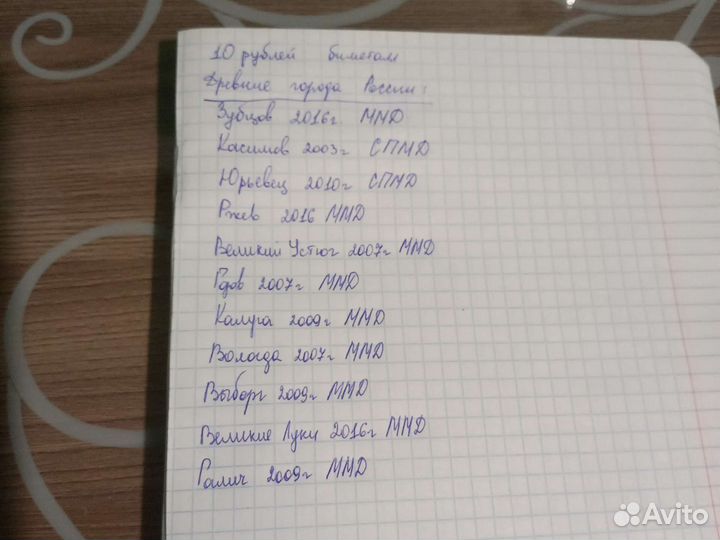 10 рублей биметал
Древние города России:
Зубцов 2016г. ММД
Касимов 2003г СПМД
Юрьевец 2010г СПМД
Ржев 2016 ММД
Великий Устюг 2007г ММД
Гдов 2007г ММД
Калуга 2009г ММД
Вологда 2007г ММД
Выборг 2009г ММД
Великие Луки 2016г ММД
Галич 2009г ММД
Avito